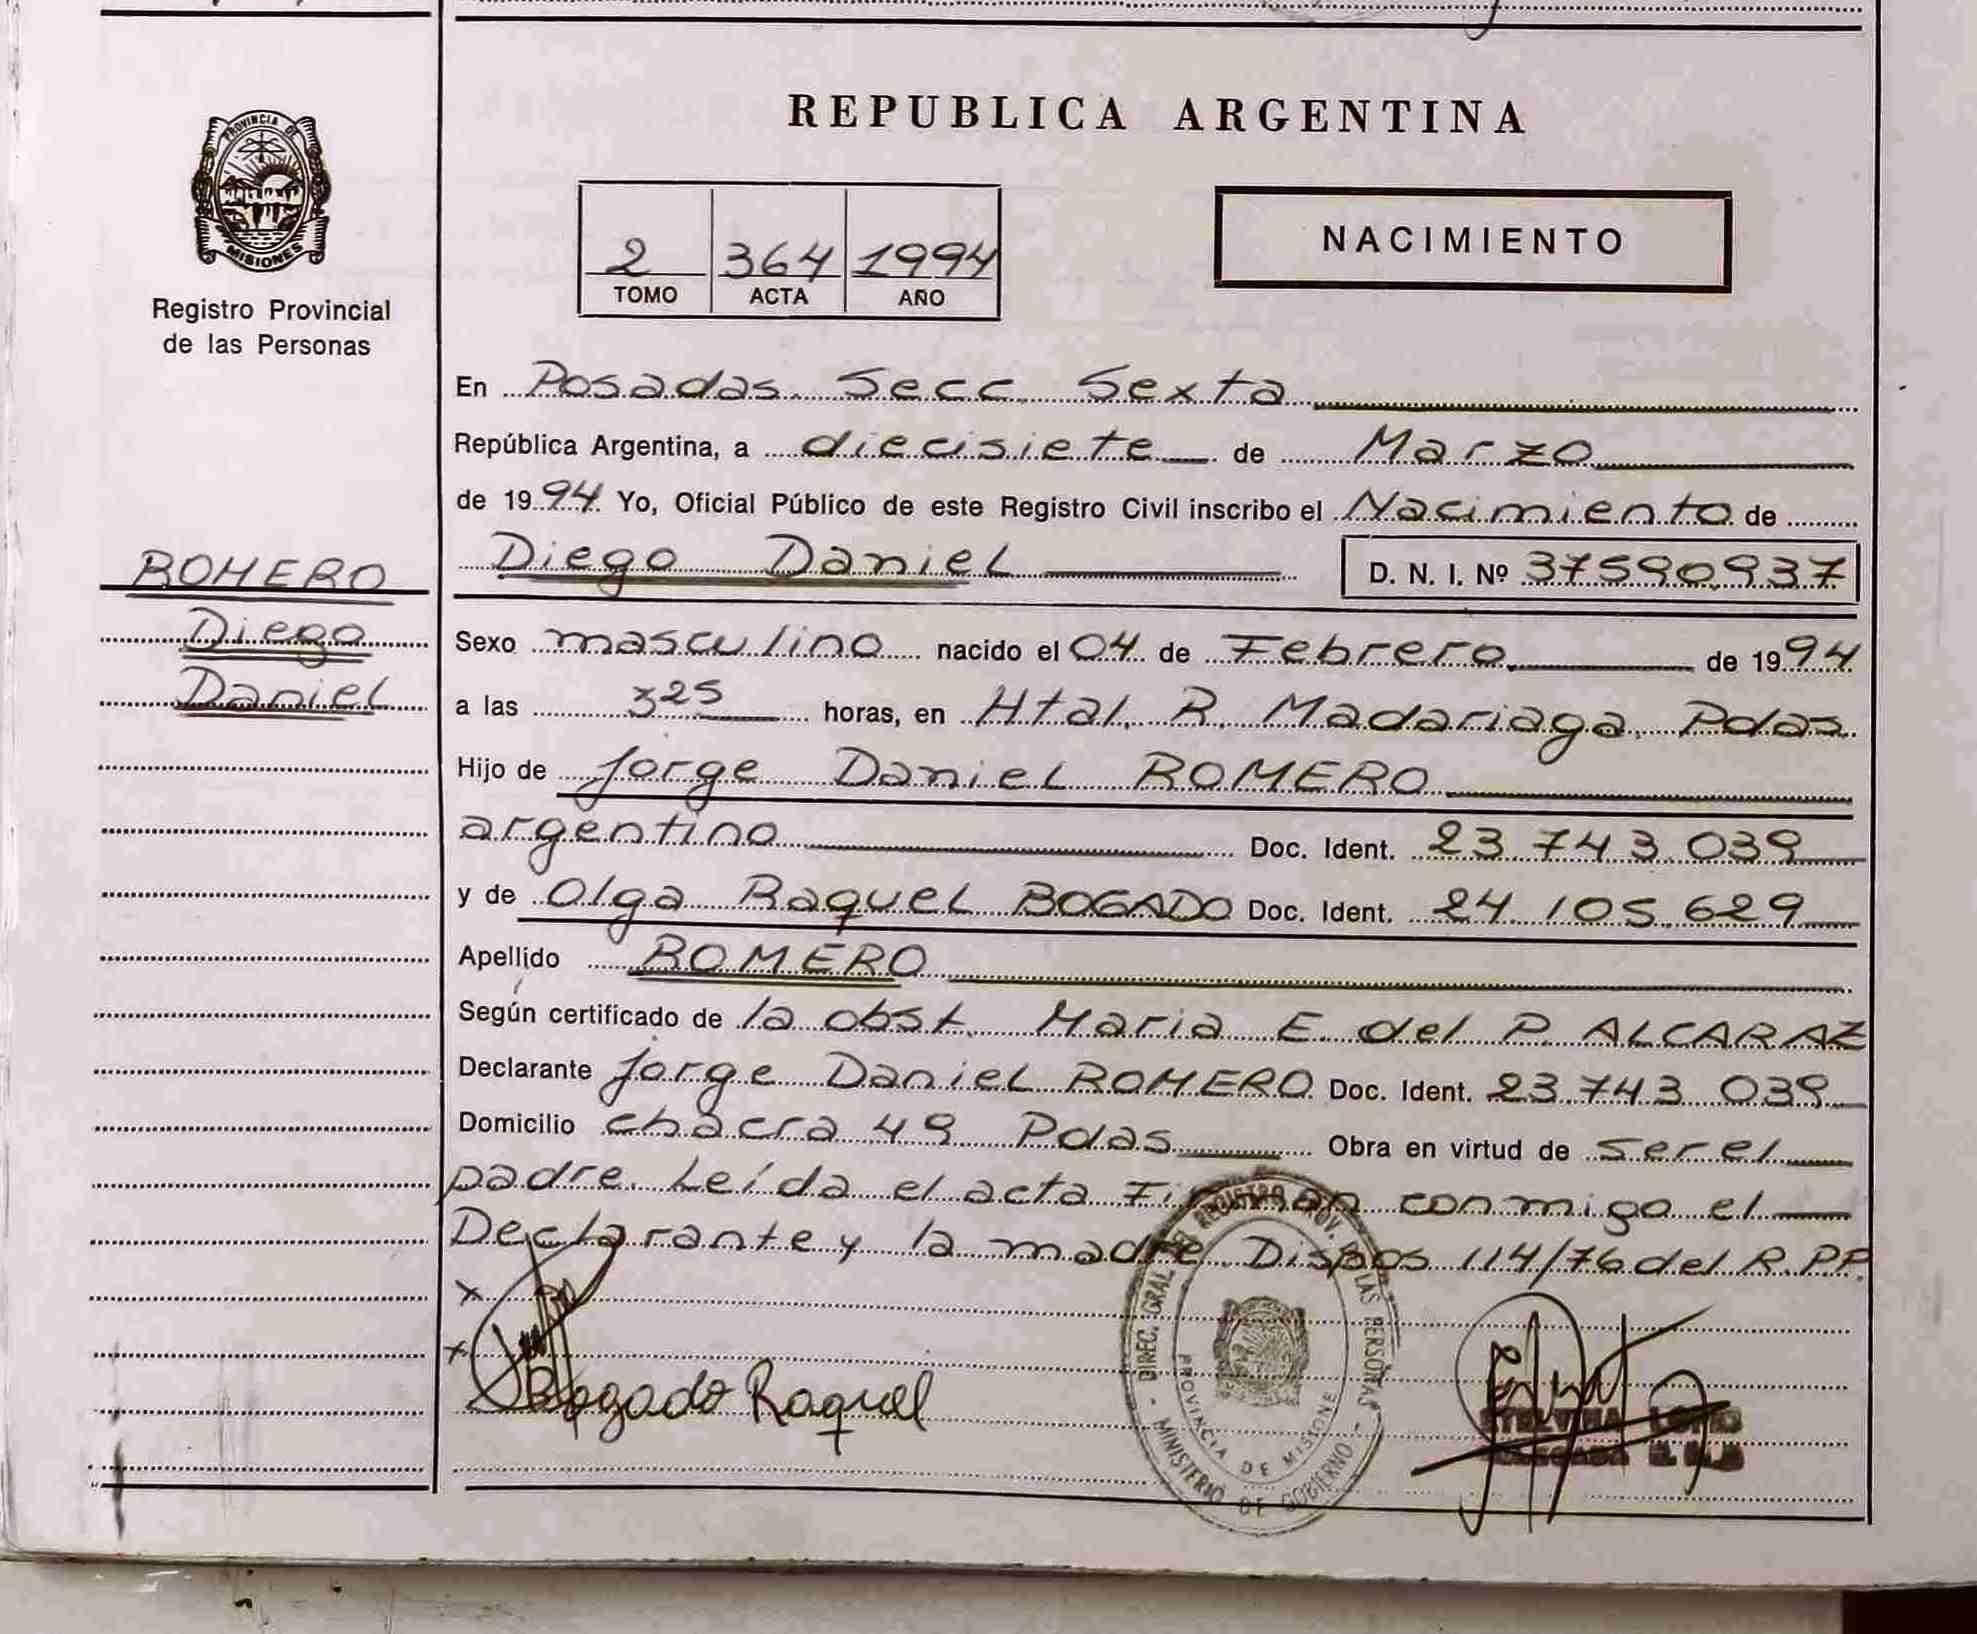 REPUBLICA ARGENTINA
PROVINCIA DE
MISIONES
Registro Provincial
de las Personas
2 364 1994
TOMO ACTA AÑO
NACIMIENTO
En Posadas. Secc. Sexta
República Argentina, a diecisiete de Marzo
de 1994 Yo, Oficial Público de este Registro Civil inscribo el Nacimiento de
Diego Daniel D. N. I. Nº 37590.937
ROMERO
Diego
Daniel
Sexo masculino nacido el 04 de Febrero de 1994
a las 3 25 horas, en Htal. R. Madariaga. Pdas.
Hijo de Jorge Daniel ROMERO
argentino Doc. Ident. 23.743.039
y de Olga Raquel BOGADO Doc. Ident. 24.105.629
Apellido ROMERO
Según certificado de la obst. Maria E. del P. ALCARAZ
Declarante Jorge Daniel ROMERO Doc. Ident. 23.743.039
Domicilio chacra 49 Pdas Obra en virtud de ser el
padre. Leída el acta Firman conmigo el
Declarante y la madre. Dispos 114/76 del R.P.P.
x
x
Bogado Raquel
DIREC. GRAL. DEL REGISTRO PROV. DE LAS PERSONAS
PROVINCIA DE MISIONES
MINISTERIO DE GOBIERNO